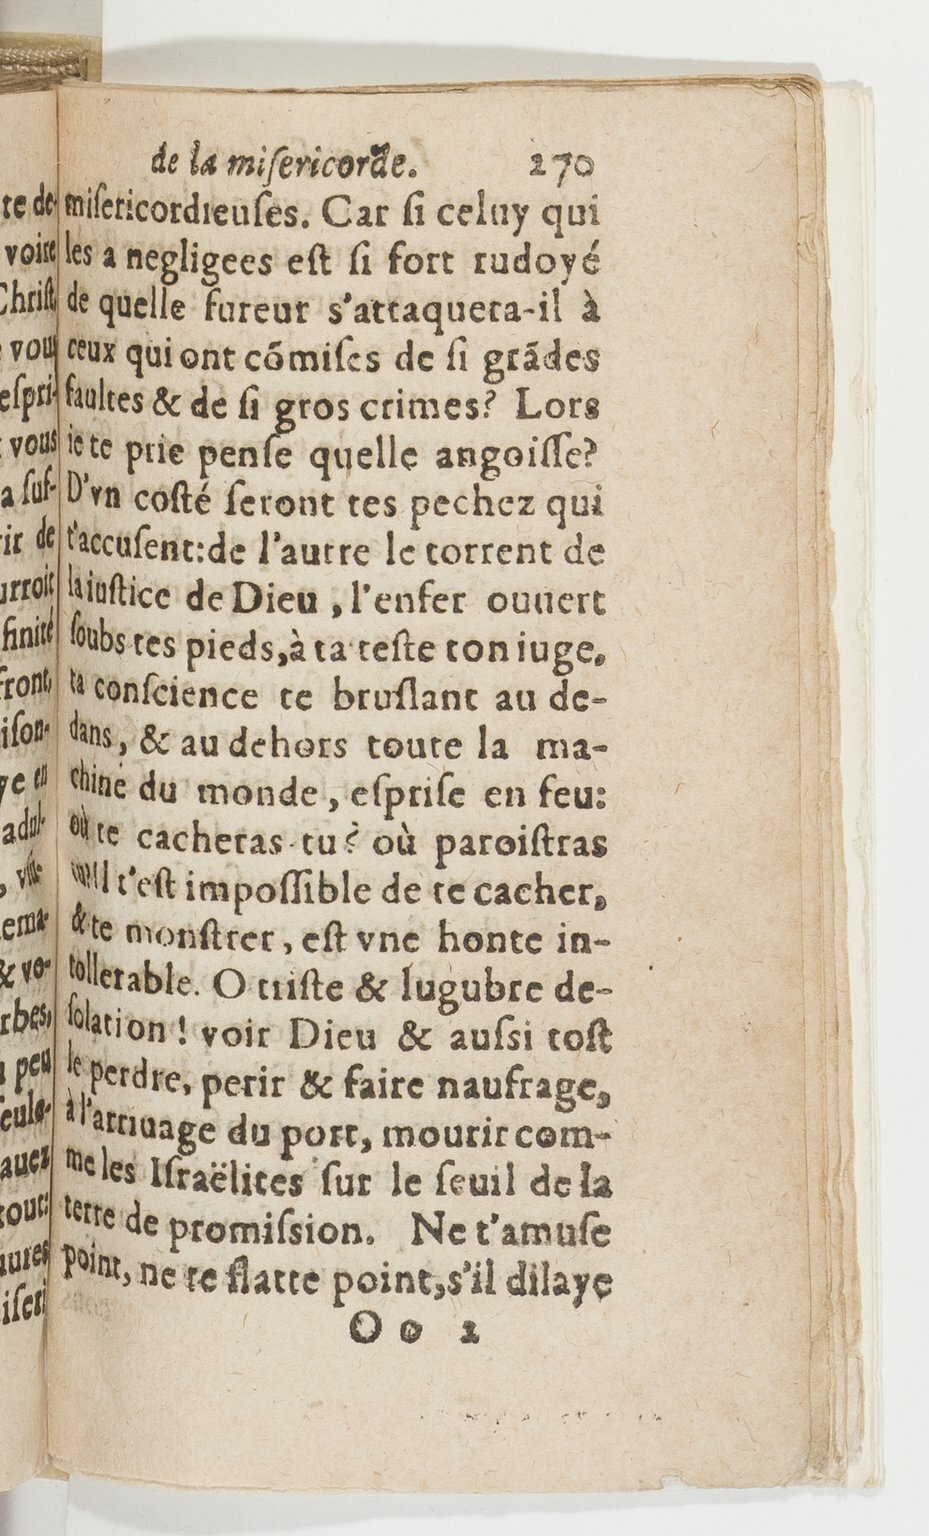 de la miſericorde. 270
miſericordieuſes. Car ſi celuy qui
les a negligees eſt ſi fort rudoyé
de quelle fureur s'attaquera-il à
ceux qui ont cõmiſes de ſi grãdes
faultes & de ſi gros crimes? Lors
ie te prie penſe quelle angoiſſe?
D'vn coſté ſeront tes pechez qui
t'accuſent: de l'autre le torrent de
la iuſtice de Dieu, l'enfer ouuert
ſoubs tes pieds, à ta teſte ton iuge,
ta conſcience te bruſlant au de-
dans, & au dehors toute la ma-
chine du monde, eſpriſe en feu:
où te cacheras tu? où paroiſtras
t'eſt impoſſible de te cacher,
& te monſtrer, eſt vne honte in-
tollerable. O triſte & lugubre de-
ſolation! voir Dieu & auſsi toſt
le perdre, perir & faire naufrage,
à l'arriuage du port, mourir com-
me les Iſraëlites ſur le ſeuil de la
terre de promiſsion. Ne t'amuſe
point, ne te flatte point, s'il dilaye
O o 2
te de-
voire
Chriſt,
vou
eſpri-
vous
a ſuſ-
rir de
urroit
finité
front,
iſon-
ye en
adul-
ema-
& vo-
rbes,
peu
ſeule-
auez
tout:
iures
iſeri